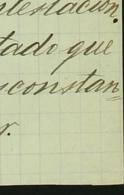 ntestación.
tado que
sconstan
r.